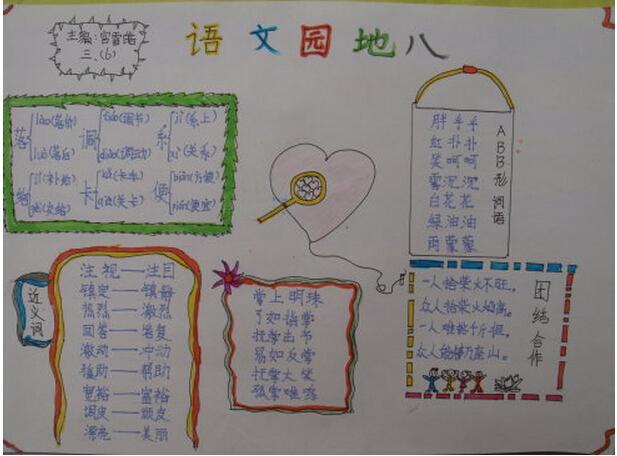 语文园地八
主编:宫雪皓
三、(6)
落 lào(落价) luò(落后)
调 tiáo(调节) diào(调动)
系 jì(系上) xì(关系)
给 jǐ(补给)
卡 kǎ(卡车) qiǎ(关卡)
便 biàn(方便) pián(便宜)
ABB形词语
胖乎乎
红扑扑
笑呵呵
雾沉沉
白花花
绿油油
雨蒙蒙
近义词
注视——注目
镇定——镇静
热烈——激烈
回答——答复
激动——冲动
援助——帮助
宽裕——富裕
调皮——顽皮
漂亮——美丽
掌上明珠
了如指掌
抚掌击节
易如反掌
抚掌大笑
孤掌难鸣
团结合作
一人拾柴火不旺。
众人拾柴火焰高。
一人难挑千斤担。
众人能移万座山。